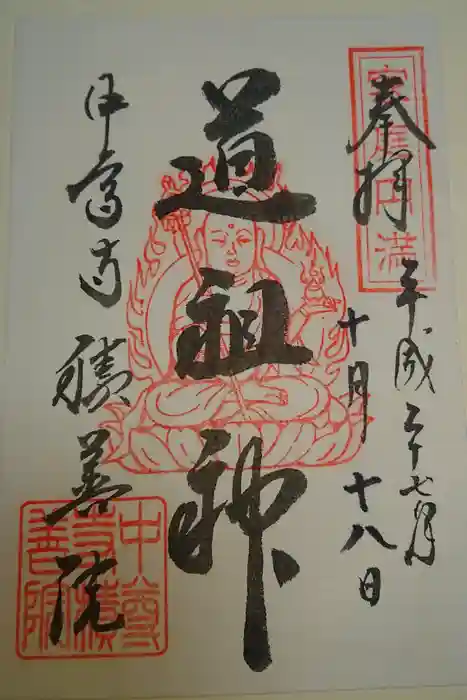 奉拝
家庭円満
平成二十七年
十月十八日
道祖神
中尊寺 勝善院
中尊
寺積
善院